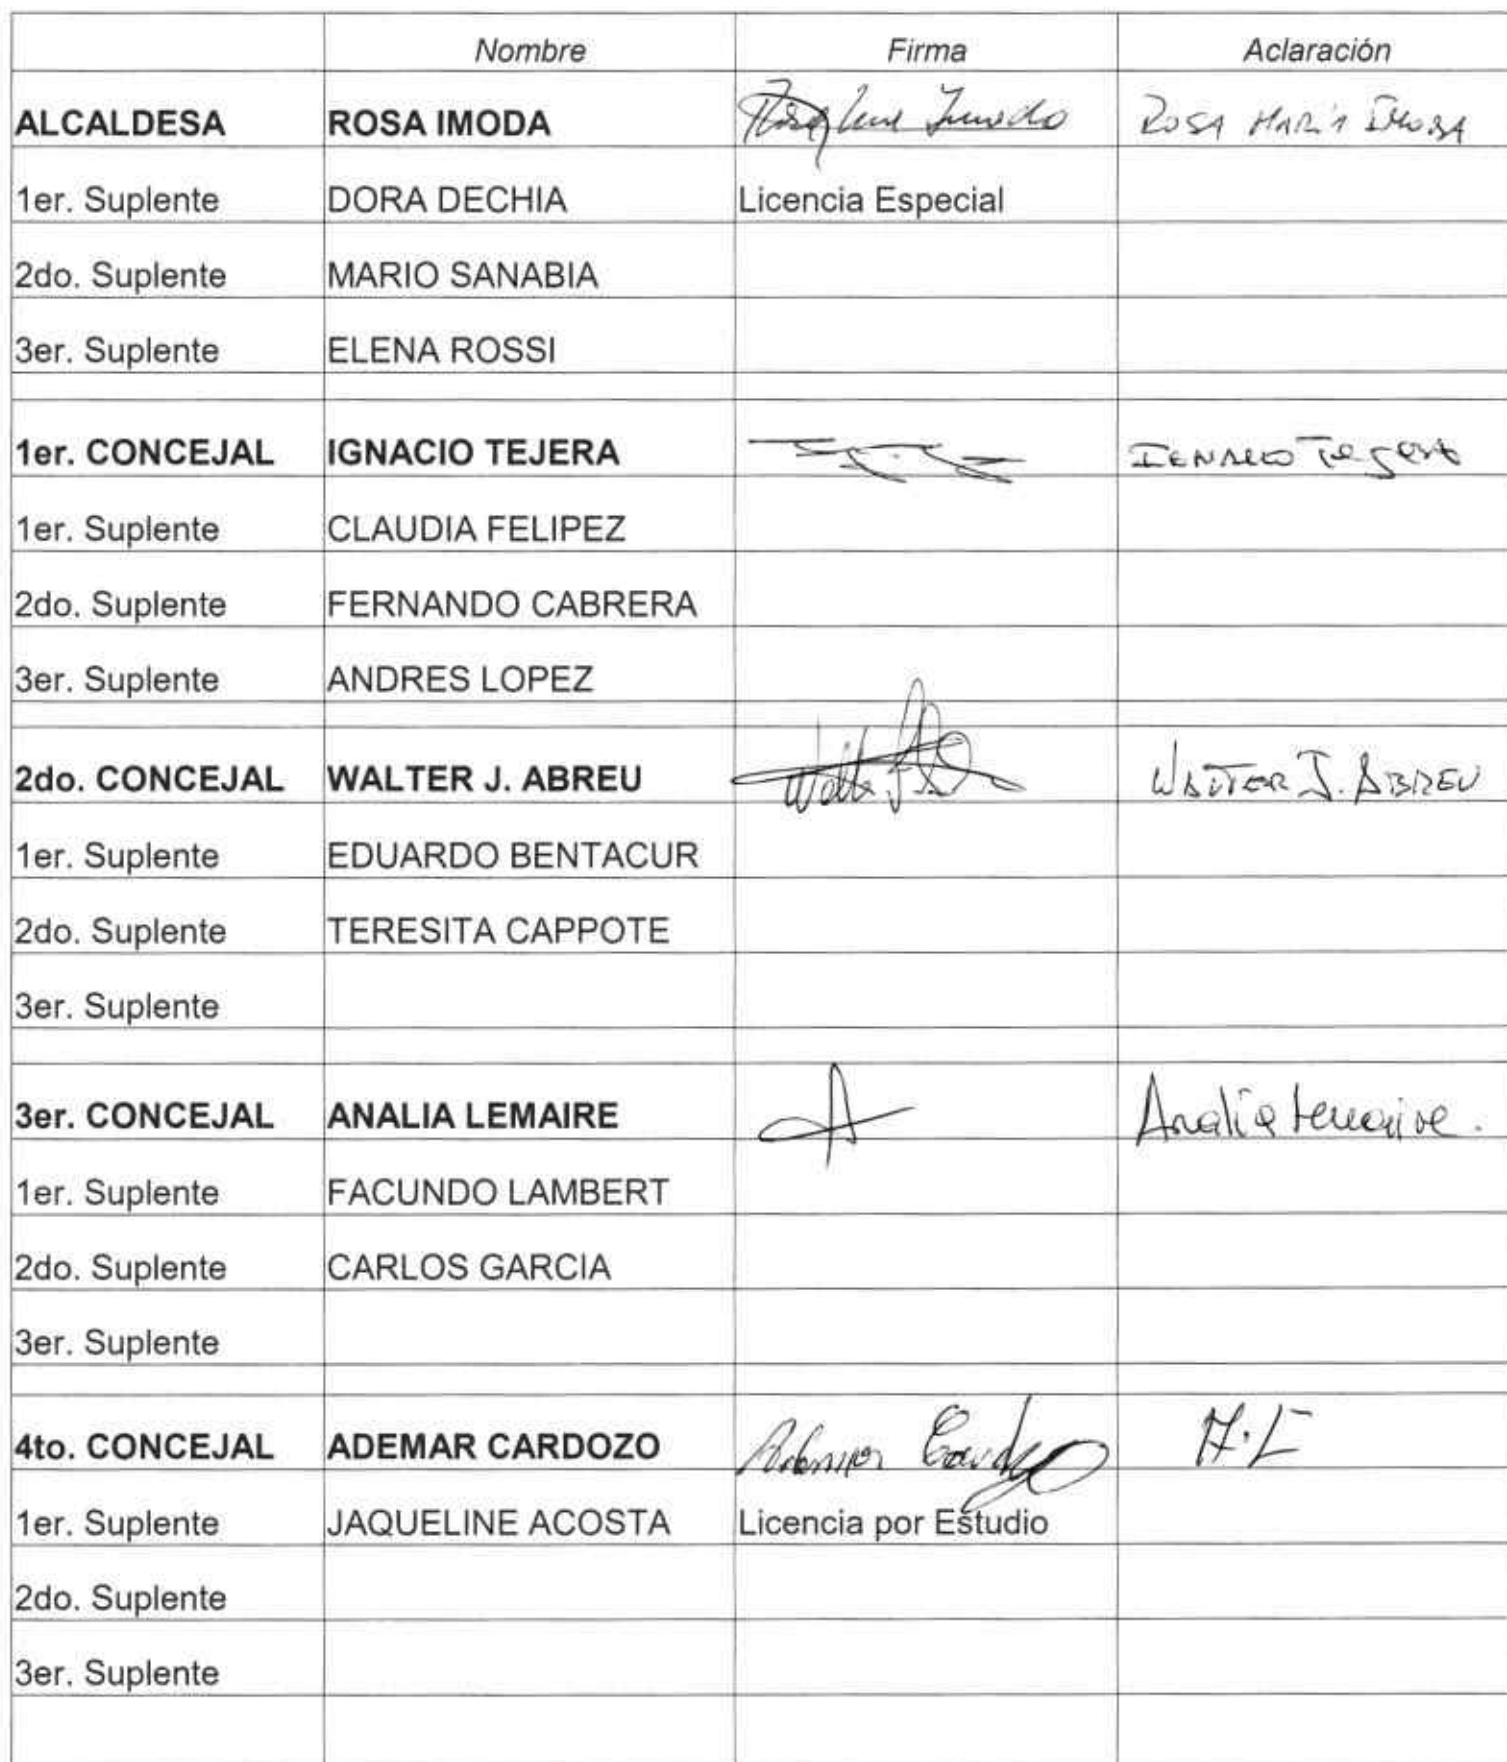 Nombre Firma Aclaración
ALCALDESA ROSA IMODA ROSA MARÍA IMODA
1er. Suplente DORA DECHIA Licencia Especial
2do. Suplente MARIO SANABIA
3er. Suplente ELENA ROSSI
1er. CONCEJAL IGNACIO TEJERA IGNACIO Tejera
1er. Suplente CLAUDIA FELIPEZ
2do. Suplente FERNANDO CABRERA
3er. Suplente ANDRES LOPEZ
2do. CONCEJAL WALTER J. ABREU WALTER J. ABREU
1er. Suplente EDUARDO BENTACUR
2do. Suplente TERESITA CAPPOTE
3er. Suplente
3er. CONCEJAL ANALIA LEMAIRE A Analía Lemaire.
1er. Suplente FACUNDO LAMBERT
2do. Suplente CARLOS GARCIA
3er. Suplente
4to. CONCEJAL ADEMAR CARDOZO Ademar Cardozo
1er. Suplente JAQUELINE ACOSTA Licencia por Estudio
2do. Suplente
3er. Suplente